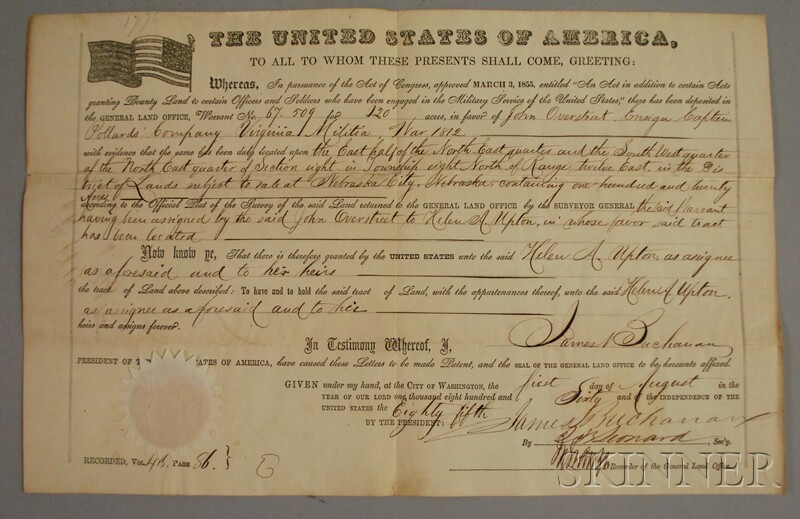 THE UNITED STATES OF AMERICA,
TO ALL TO WHOM THESE PRESENTS SHALL COME, GREETING:
Whereas, In pursuance of the Act of Congress, approved MARCH 3, 1855, entitled "An Act in addition to certain Acts
granting Bounty Land to certain Officers and Soldiers who have been engaged in the Military Service of the United States," there has been deposited in
the GENERAL LAND OFFICE, Warrant No. 67.509 for 120 acres, in favor of John Overstreet Ensign Captain
Pollards Company Virginia Militia, War 1812
with evidence that the same has been duly located upon the East half of the North East quarter and the South West quarter
of the North East quarter of Section eight, in Township eight, North of Range twelve East, in the Dis
trict of Lands subject to sale at Nebraska City, Nebraska, containing one hundred and twenty
Acres
according to the Official Plat of the Survey of the said Land returned to the GENERAL LAND OFFICE by the SURVEYOR GENERAL the said Warrant
having been assigned by the said John Overstreet to Helen A. Upton, in whose favor said tract
has been located
Now know ye, That there is therefore granted by the UNITED STATES unto the said Helen A. Upton as assignee
as aforesaid and to her heirs
the tract of Land above described: To have and to hold the said tract of Land, with the appurtenances thereof, unto the said Helen A. Upton,
as assignee as aforesaid and to her
heirs and assigns forever.
In Testimony Whereof, I, James Buchanan
PRESIDENT OF STATES OF AMERICA, have caused these Letters to be made Patent, and the SEAL OF THE GENERAL LAND OFFICE to be hereunto affixed.
GIVEN under my hand, at the CITY OF WASHINGTON, the first day of August in the
YEAR OF OUR LORD one thousand eight hundred and Sixty and of the INDEPENDENCE OF THE
UNITED STATES the Eighty fifth
BY THE PRESIDENT: James Buchanan
By Leonard Sec'y.
RECORDED, VOL. PAGE 86.
Recorder of the General Land Office
SKINNER